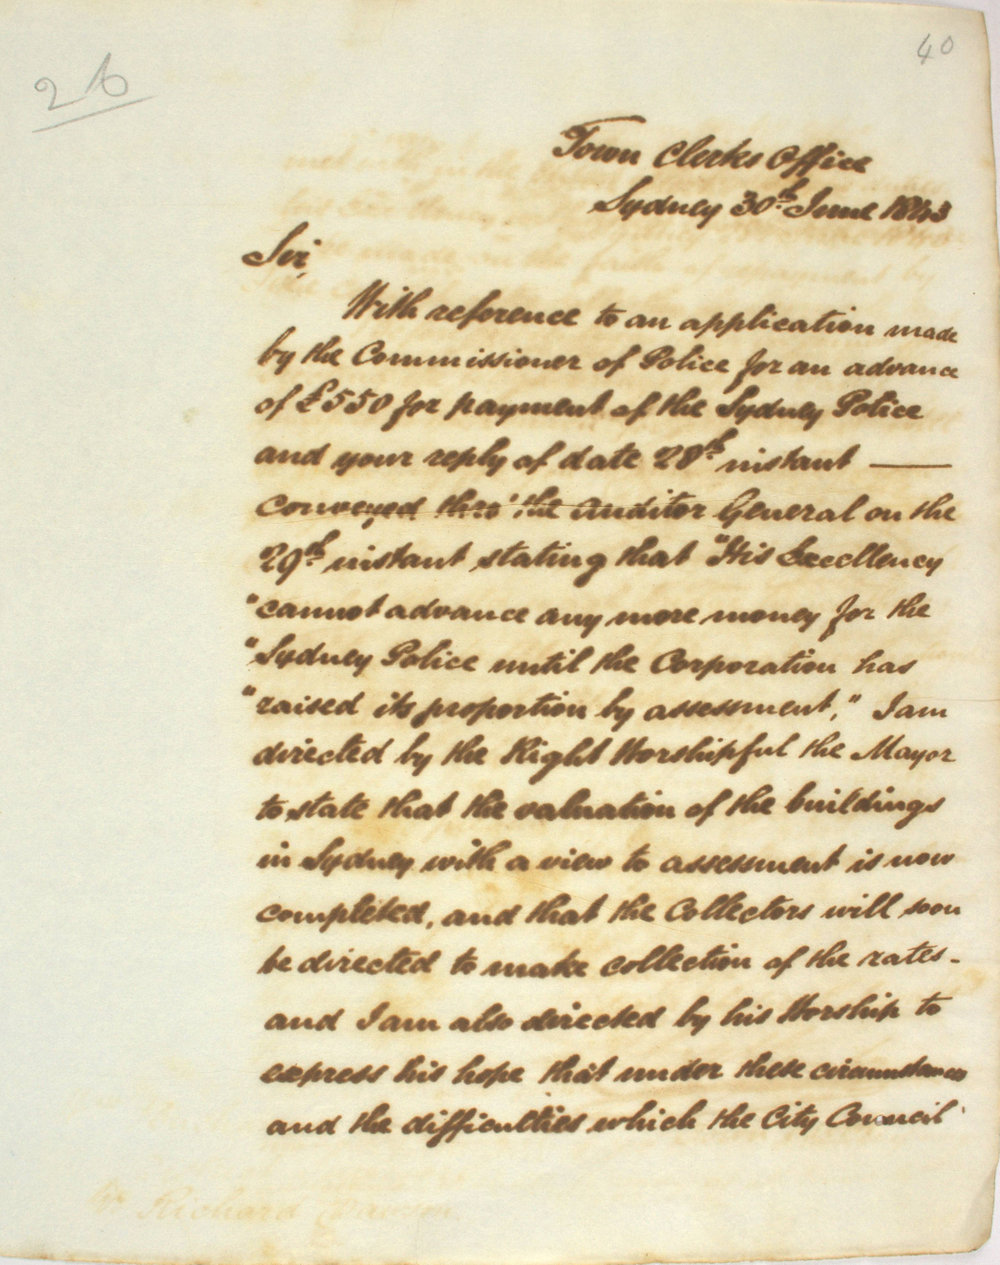 40
26
Town Clerks Office
Sydney 30th June 1843
Sir,
With reference to an application made
by the Commissioner of Police for an advance
of £550 for payment of the Sydney Police
and your reply of date 28th instant ———
conveyed thro' the Auditor General on the
29th instant stating that "His Excellency
"cannot advance any more money for the
"Sydney Police until the Corporation has
"raised its proportion by assessment," I am
directed by the Right Worshipful the Mayor
to state that the valuation of the buildings
in Sydney with a view to assessment is now
completed, and that the Collectors will soon
be directed to make collection of the rates-
and I am also directed by his Worship to
express his hope that under these circumstances
and the difficulties which the City Council
Richard